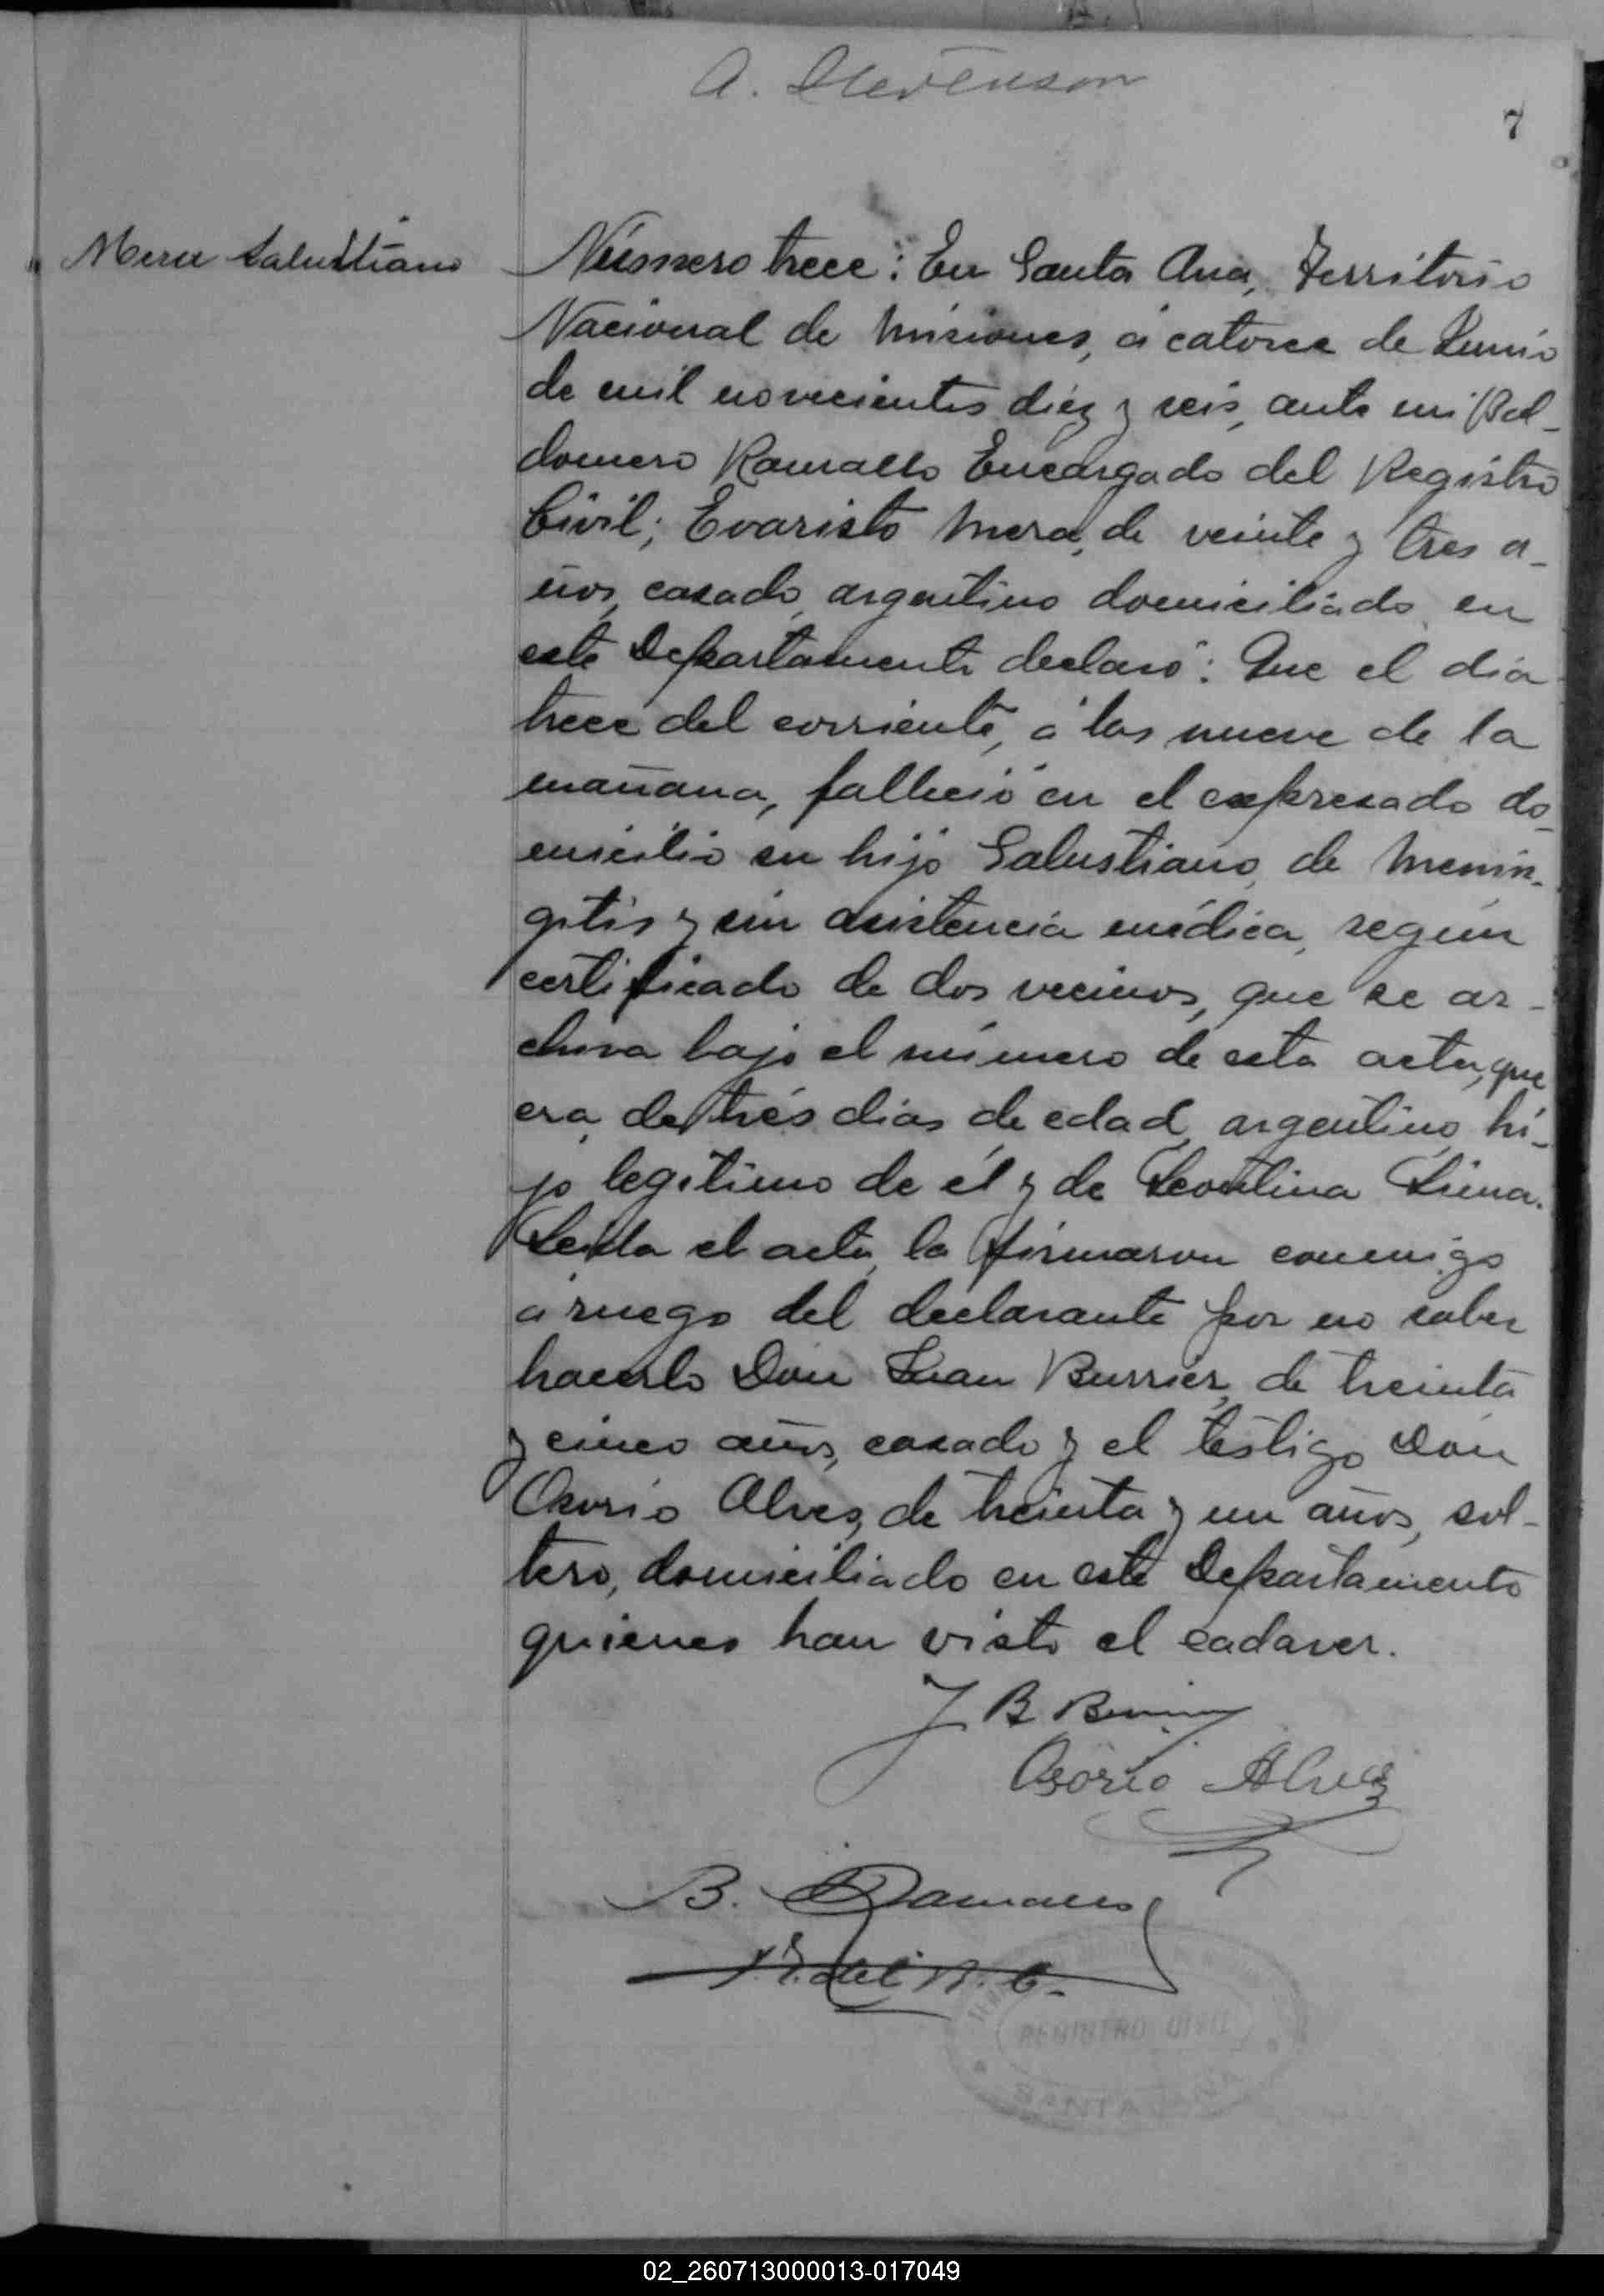 A. Stevenson
7
Mera Salustiano
Número trece: En Santa Ana, Territorio
Nacional de Misiones, á catorce de Junio
de mil novecientos diez y seis, ante mi Bal-
domero Ramallo Encargado del Registro
Civil; Evaristo Mera, de veinte y tres a-
ños, casado, argentino domiciliado en
este Departamento declaró: Que el día
trece del corriente, á las nueve de la
mañana, falleció en el expresado do-
micilio su hijo Salustiano, de Menin-
gitis y sin asistencia médica, según
certificado de dos vecinos, que se ar-
chiva bajo el número de esta acta, que
era de trés dias de edad, argentino, hi-
jo legítimo de él y de Leontina Lima.
Leida el acta, la firmaron conmigo
á ruego del declarante por no saber
hacerlo Don Juan Burrier, de treinta
y cinco años, casado y el testigo Don
Osorio Alves, de treinta y un años, sol-
tero, domiciliado en este Departamento
quienes han visto el cadaver.
J B
Osorio Alves
B. Ramallo
E. del R. C.
REGISTRO CIVIL
SANTA ANA
02_260713000013-017049